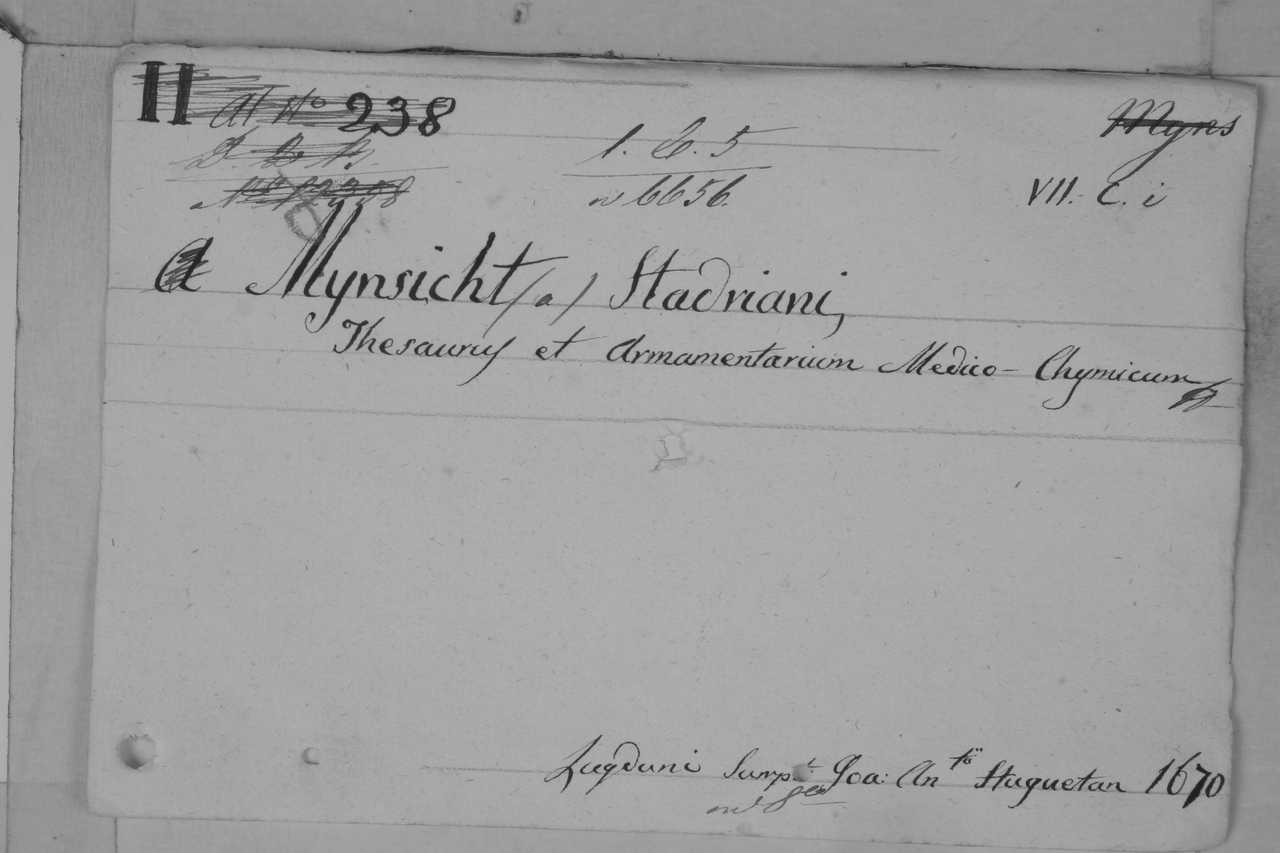 II At No 238
Myns
1. C. 5
n 6656.
VII. C. i
a Mynsicht /a/ Hadriani,
Thesaurus et Armamentarium Medico-Chymicum
Lugduni Sumpt Joa: Anto Huguetan 1670